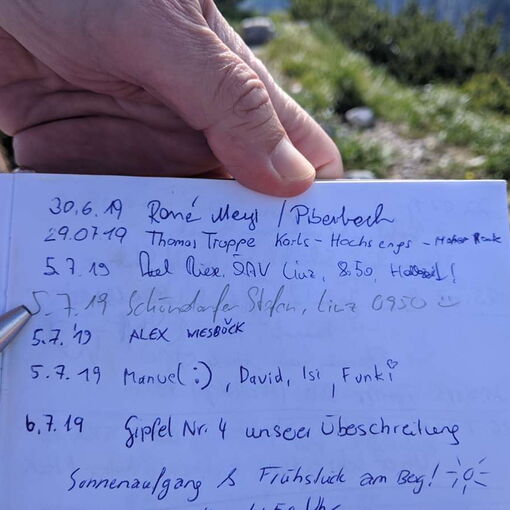 30.6.19 René Meyl / Piberbach
29.07.19 Thomas Truppe Karls-Hochsengs -
5.7.19 ÖAV Linz, 8:50,
5.7.19 Schöndorfer Stefan, Linz 0950 :)
5.7.19 ALEX WIESBÖCK
5.7.19 Manuel :), David, Isi, Funki
6.7.19 Gipfel Nr. 4 unserer Überschreitung
Sonnenaufgang & Frühstück am Berg!